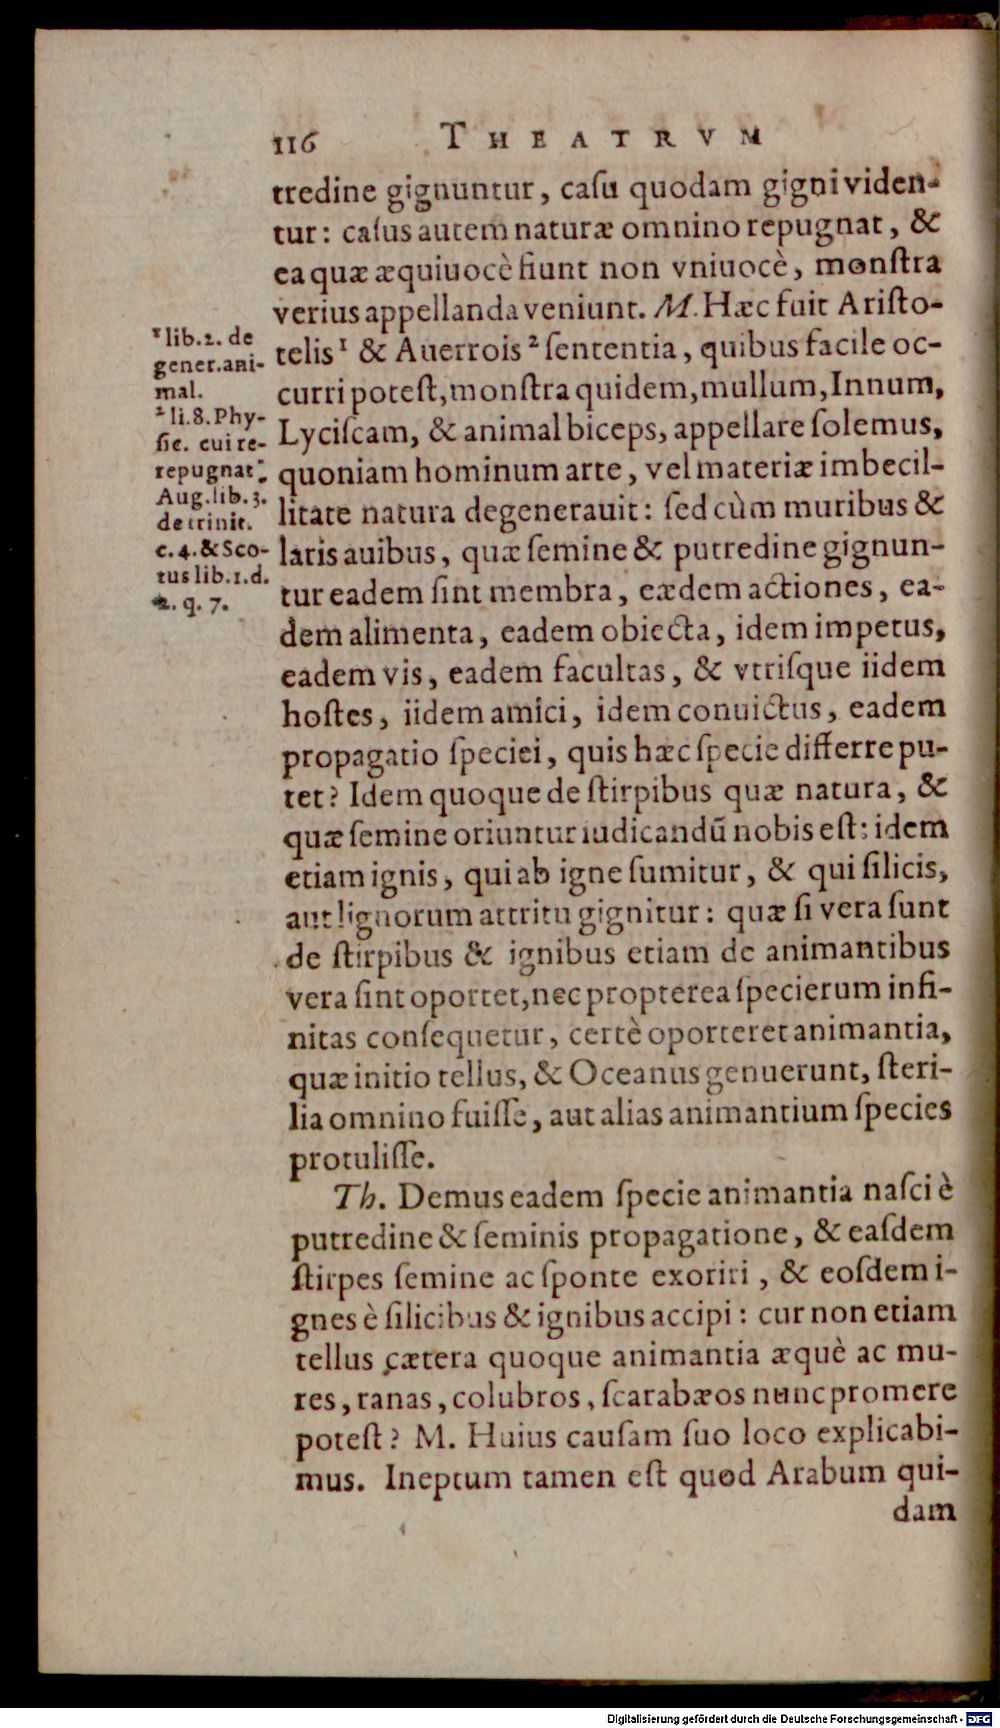 116 THEATRVM
tredine gignuntur, caſu quodam gigni viden-
tur: caſus autem naturæ omnino repugnat, &
ea quæ æquiuocè fiunt non vniuocè, monſtra
verius appellanda veniunt. M. Hæc fuit Ariſto-
telis¹ & Auerrois² ſententia, quibus facile oc-
curri poteſt, monſtra quidem, mullum, Innum,
Lyciſcam, & animal biceps, appellare ſolemus,
quoniam hominum arte, vel materiæ imbecil-
litate natura degenerauit: ſed cùm muribus &
laris auibus, quæ ſemine & putredine gignun-
tur eadem ſint membra, eædem actiones, ea-
dem alimenta, eadem obiecta, idem impetus,
eadem vis, eadem facultas, & vtriſque iidem
hoſtes, iidem amici, idem conuictus, eadem
propagatio ſpeciei, quis hæc ſpecie differre pu-
tet? Idem quoque de ſtirpibus quæ natura, &
quæ ſemine oriuntur iudicandū nobis eſt: idem
etiam ignis, qui ab igne ſumitur, & qui ſilicis,
aut lignorum attritu gignitur: quæ ſi vera ſunt
de ſtirpibus & ignibus etiam de animantibus
vera ſint oportet, nec propterea ſpecierum infi-
nitas conſequetur, certè oporteret animantia,
quæ initio tellus, & Oceanus genuerunt, ſteri-
lia omnino fuiſſe, aut alias animantium ſpecies
protuliſſe.
Th. Demus eadem ſpecie animantia naſci è
putredine & ſeminis propagatione, & eaſdem
ſtirpes ſemine ac ſponte exoriri, & eoſdem i-
gnes è ſilicibus & ignibus accipi: cur non etiam
tellus cætera quoque animantia æquè ac mu-
res, ranas, colubros, ſcarabæos nunc promere
poteſt? M. Huius cauſam ſuo loco explicabi-
mus. Ineptum tamen eſt quod Arabum qui-
dam
¹ lib. 2. de
gener. ani-
mal.
² li. 8. Phy-
ſic. cui re-
repugnat
Aug. lib. 3.
de trinit.
c. 4. & Sco-
tus lib. 1. d.
2. q. 7.
Digitalisierung gefördert durch die Deutsche Forschungsgemeinschaft - DFG